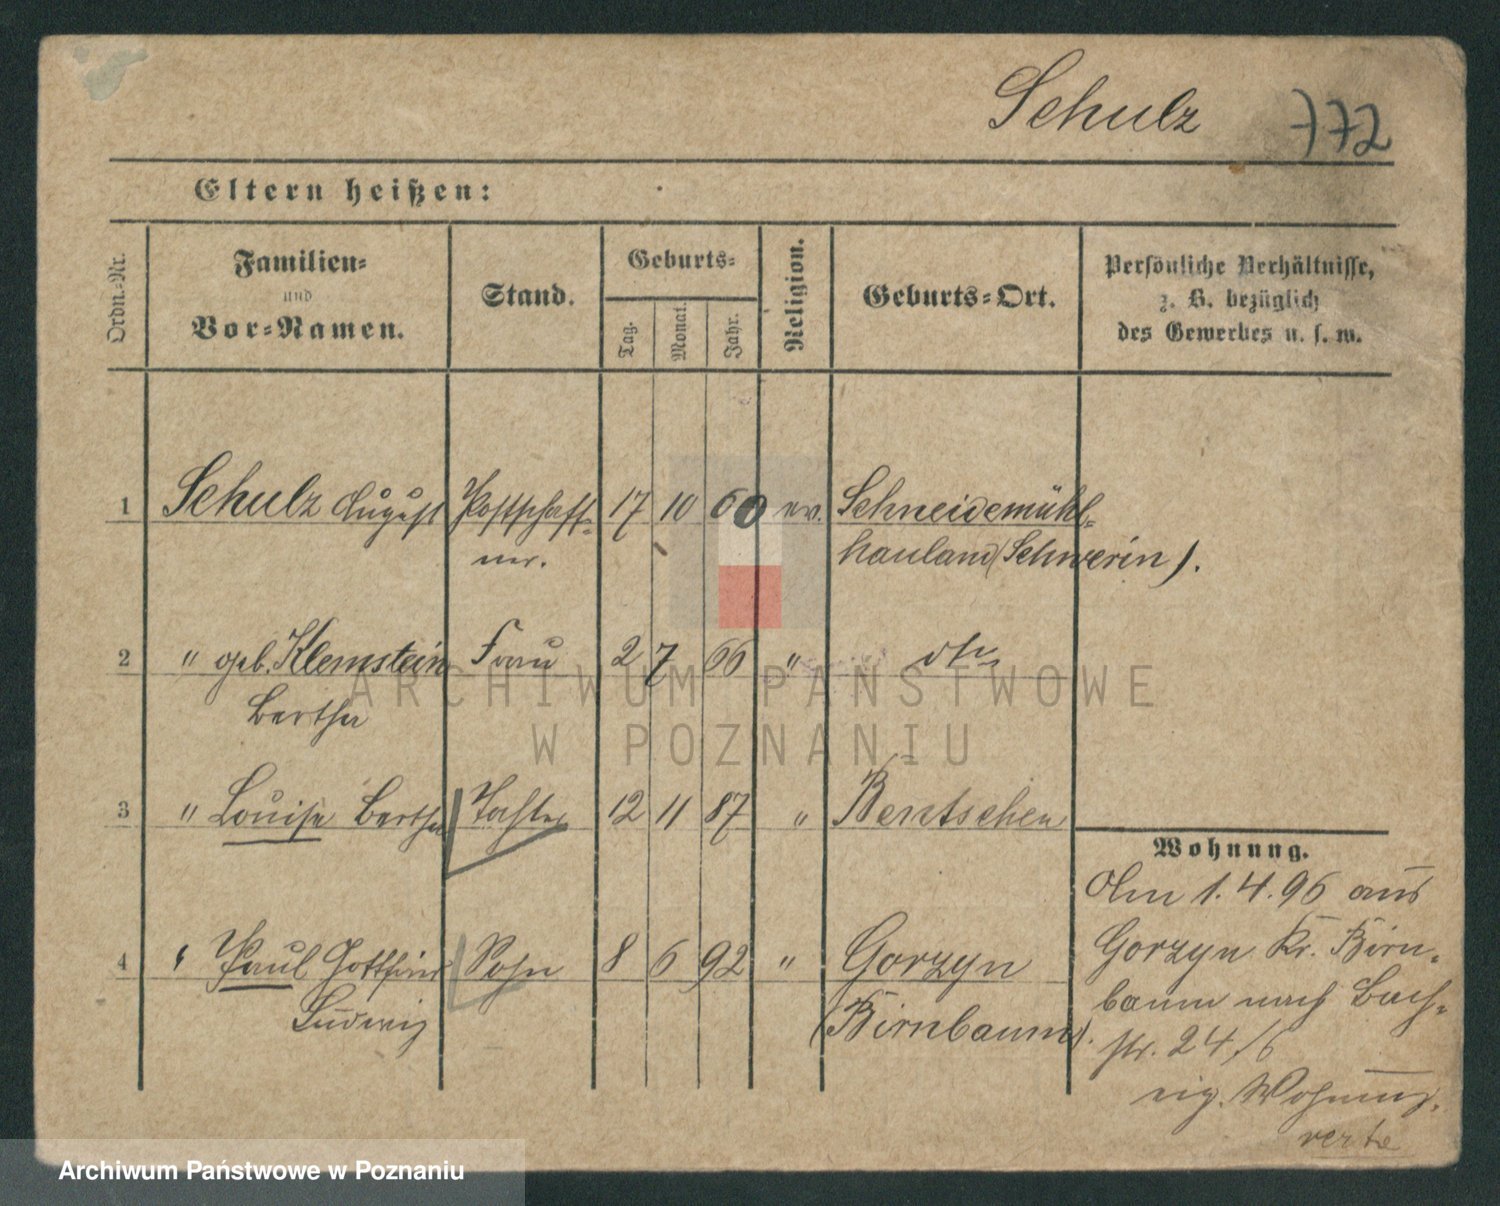 Schulz 772
Eltern heißen:
Ordn.-Nr.
Familien-
und
Vor-Namen.
Stand.
Geburts-
Tag.
Monat.
Jahr.
Religion.
Geburts-Ort.
Persönliche Verhältnisse,
z. B. bezüglich
des Gewerbes u. s. w.
1 Schulz August Postschaff- 17 10 60 ev. Schneidemühl-
ner. hauland (Schwerin).
2 " geb. Klemstein Frau 2 7 66 " dto
Bertha
3 " Louise Bertha Tochter 12 11 87 " Bentschen
Wohnung.
Am 1.4.96 aus
4 " Paul Gottfried Sohn 8 6 92 " Gorzyn
Gorzyn Kr. Birn-
Ludwig (Birnbaum).
baum nach Bach-
str. 24/6
eig. Wohnung.
verte
ARCHIWUM PAŃSTWOWE
W POZNANIU
Archiwum Państwowe w Poznaniu